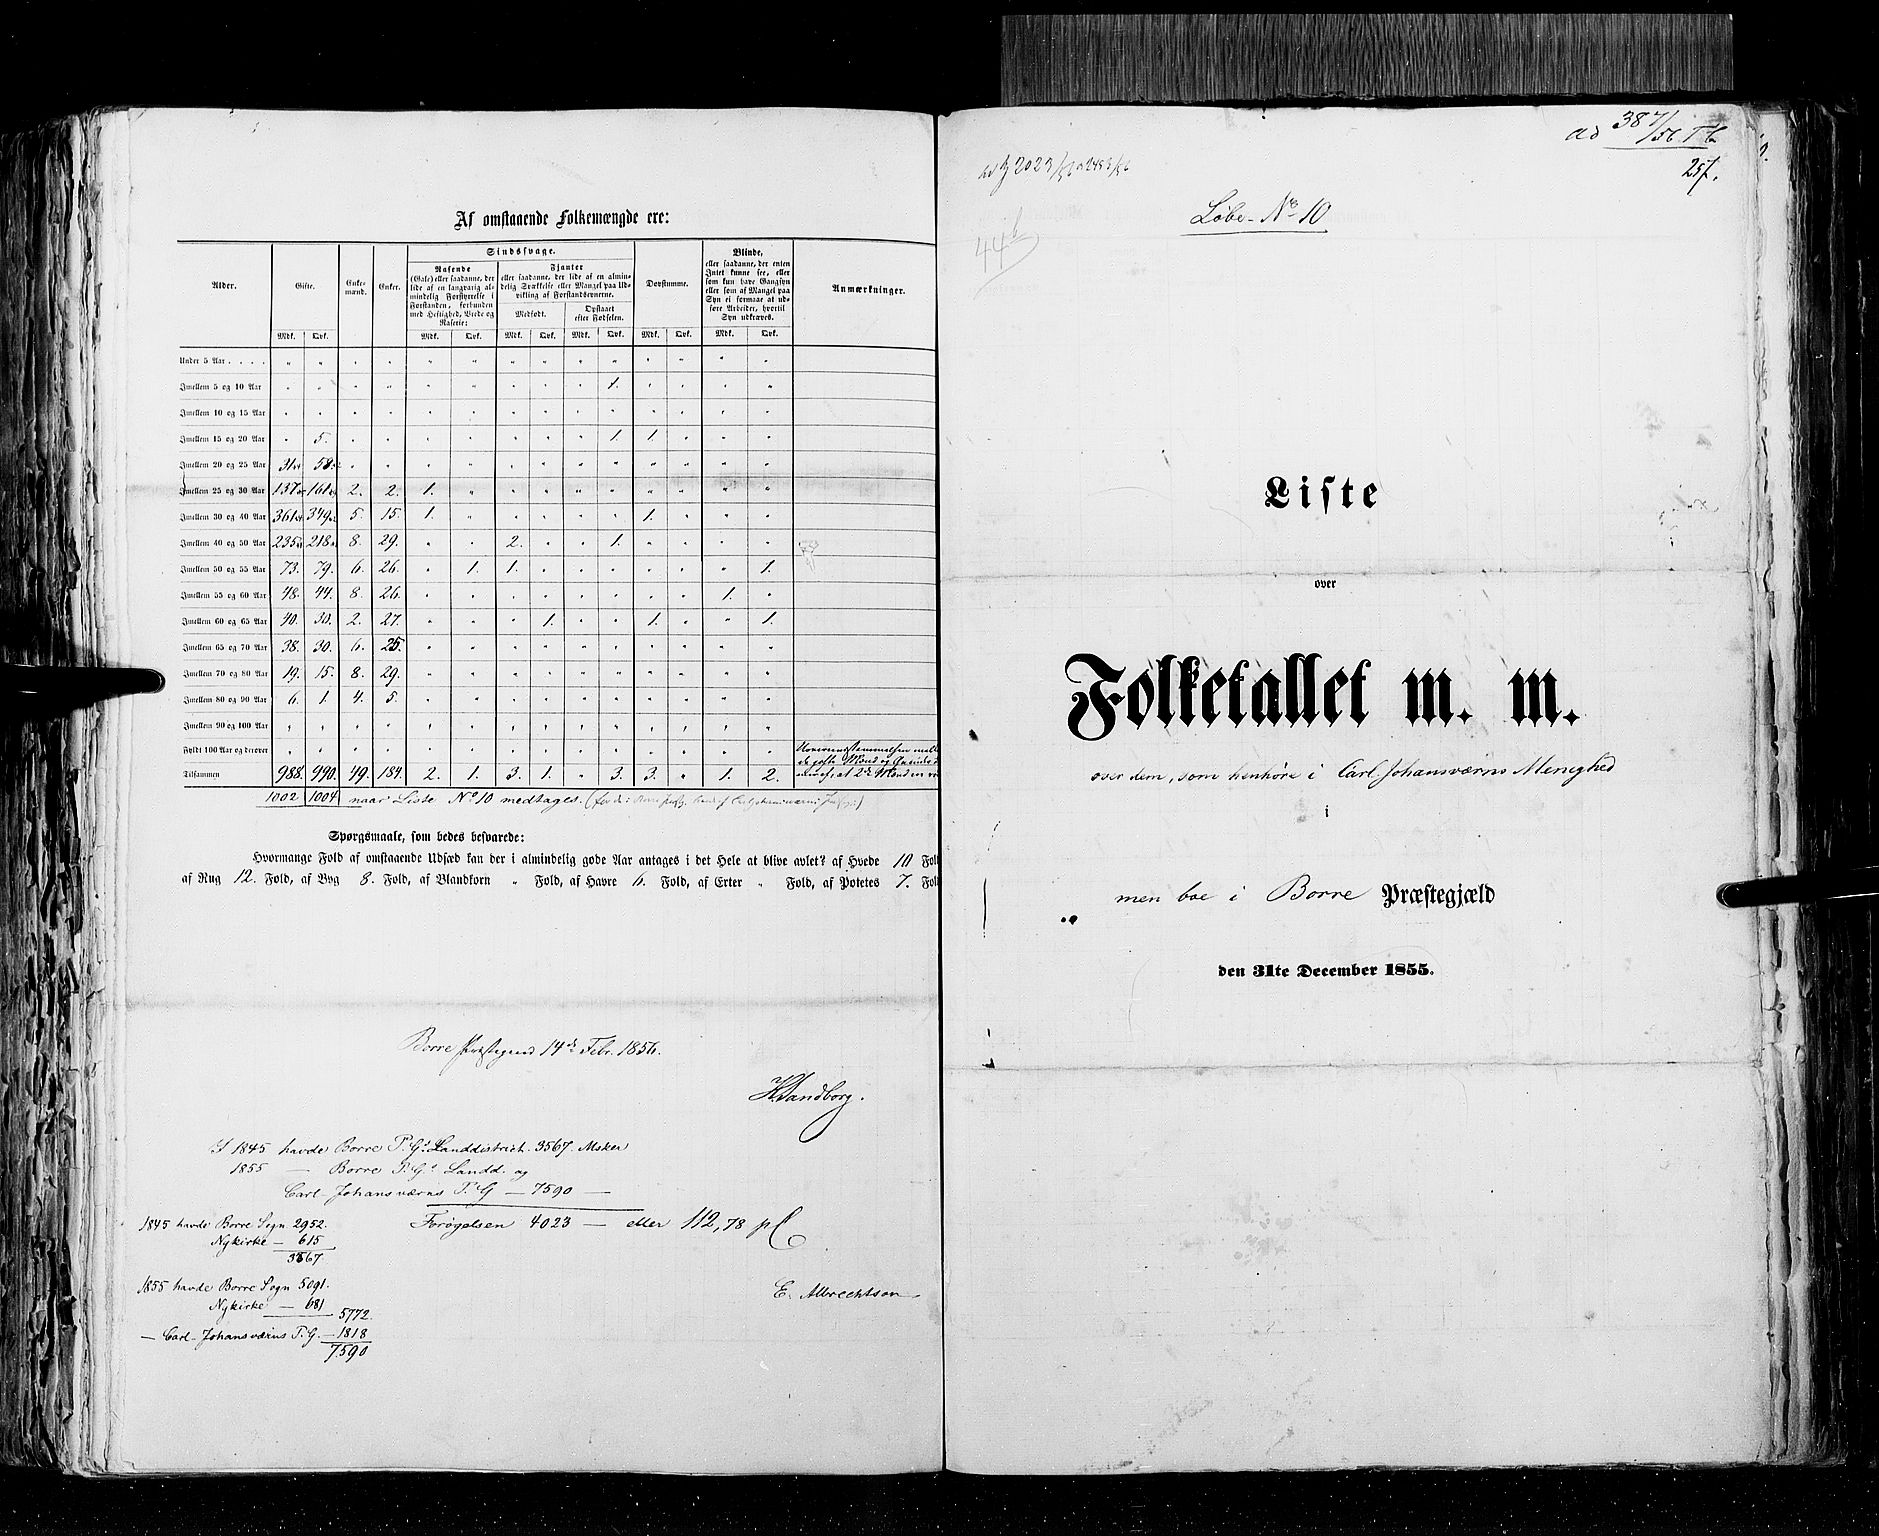 Af omstaaende Folkemængde ere:
Alder. Gifte. Enkemænd. Enker. Sindssvage. Døvstumme. Blinde, eller saadanne, der enten Intet kunne see, eller som kun have Gangsyn eller som af Mangel paa Syn ei formaae at udføre Arbeider, hvortil Syn udkræves. Anmærkninger.
Rasende (Gale) eller saadanne, der lide af en langvarig almindelig Forstyrrelse i Forstanden, forbunden med Heftighed, Vrede og Raserie:
Fjanter eller saadanne, der lide af en almindelig Svækkelse eller Mangel paa Udvikling af Forstandsevnerne.
Medfødt. Opstaaet efter Fødselen.
Mdk. Qvk. Mdk. Qvk. Mdk. Qvk. Mdk. Qvk. Mdk. Qvk. Mdk. Qvk.
Under 5 Aar . . . . " " " " " " " " " " " " " "
Imellem 5 og 10 Aar " " " " " " " " " 1. " " " "
Imellem 10 og 15 Aar " " " " " " " " " " " " " "
Imellem 15 og 20 Aar " 5. " " " " " " " 1. 1. " " "
Imellem 20 og 25 Aar 31 58 " " " " " " " " " " " "
Imellem 25 og 30 Aar 137 161 2. 2. 1. " " " " " " " " "
Imellem 30 og 40 Aar 361 349 5. 15. 1. " " " " " 1. " " "
Imellem 40 og 50 Aar 235 218 8. 29. " " 2. " " 1. " " " "
Imellem 50 og 55 Aar 73. 79. 6. 26. " 1. 1. " " " " " " 1.
Imellem 55 og 60 Aar 48. 44. 8. 26. " " " " " " " " 1. "
Imellem 60 og 65 Aar 40. 30. 2. 27. " " " 1. " " 1. " " 1.
Imellem 65 og 70 Aar 38. 30. 6. 25. " " " " " " " " " "
Imellem 70 og 80 Aar 19. 15. 8. 29. " " " " " " " " " "
Imellem 80 og 90 Aar 6. 1. 4. 5. " " " " " " " " " "
Imellem 90 og 100 Aar " " " " " " " " " " " " " "
Fyldt 100 Aar og derover " " " " " " " " " " " " " "
Tilsammen 988. 990. 49. 184. 2. 1. 3. 1. " 3. 3. " 1. 2.
de gifte Mænd og
1002 1004 naar Liste No 10 medtages.
Spørgsmaale, som bedes besvarede:
Hvormange Fold af omstaaende Udsæd kan der i almindelig gode Aar antages i det Hele at blive avlet? af Hvede 10 Fold
af Rug 12. Fold, af Byg 8. Fold, af Blandkorn " Fold, af Havre 6. Fold, af Erter " Fold, af Potetes 7. Fold
Borre Præstegaard 14de Febr. 1856.
H. Sandborg.
I 1845 havde Borre P. G.s Landdistrict. 3567. Msker
1855 — Borre P. G.s Landd. og
Carl-Johansværns P. G — 7590 —
Forøgelsen 4023 — eller 112,78 pC
1845 havde Borre Sogn 2952.
Nykirke — 615
3567
1855 havde Borre Sogn 5091.
Nykirke — 681
5772.
— Carl-Johansværns P. G. — 1818
7590
E. Albrechtson
ad 387/56 T b
257.
44b
Løbe-No 10
Liste
over
Folketallet m. m.
over dem, som henhøre i Carl-Johansværns Menighed
i
men boe i Borre Præstegjæld
den 31te December 1855.